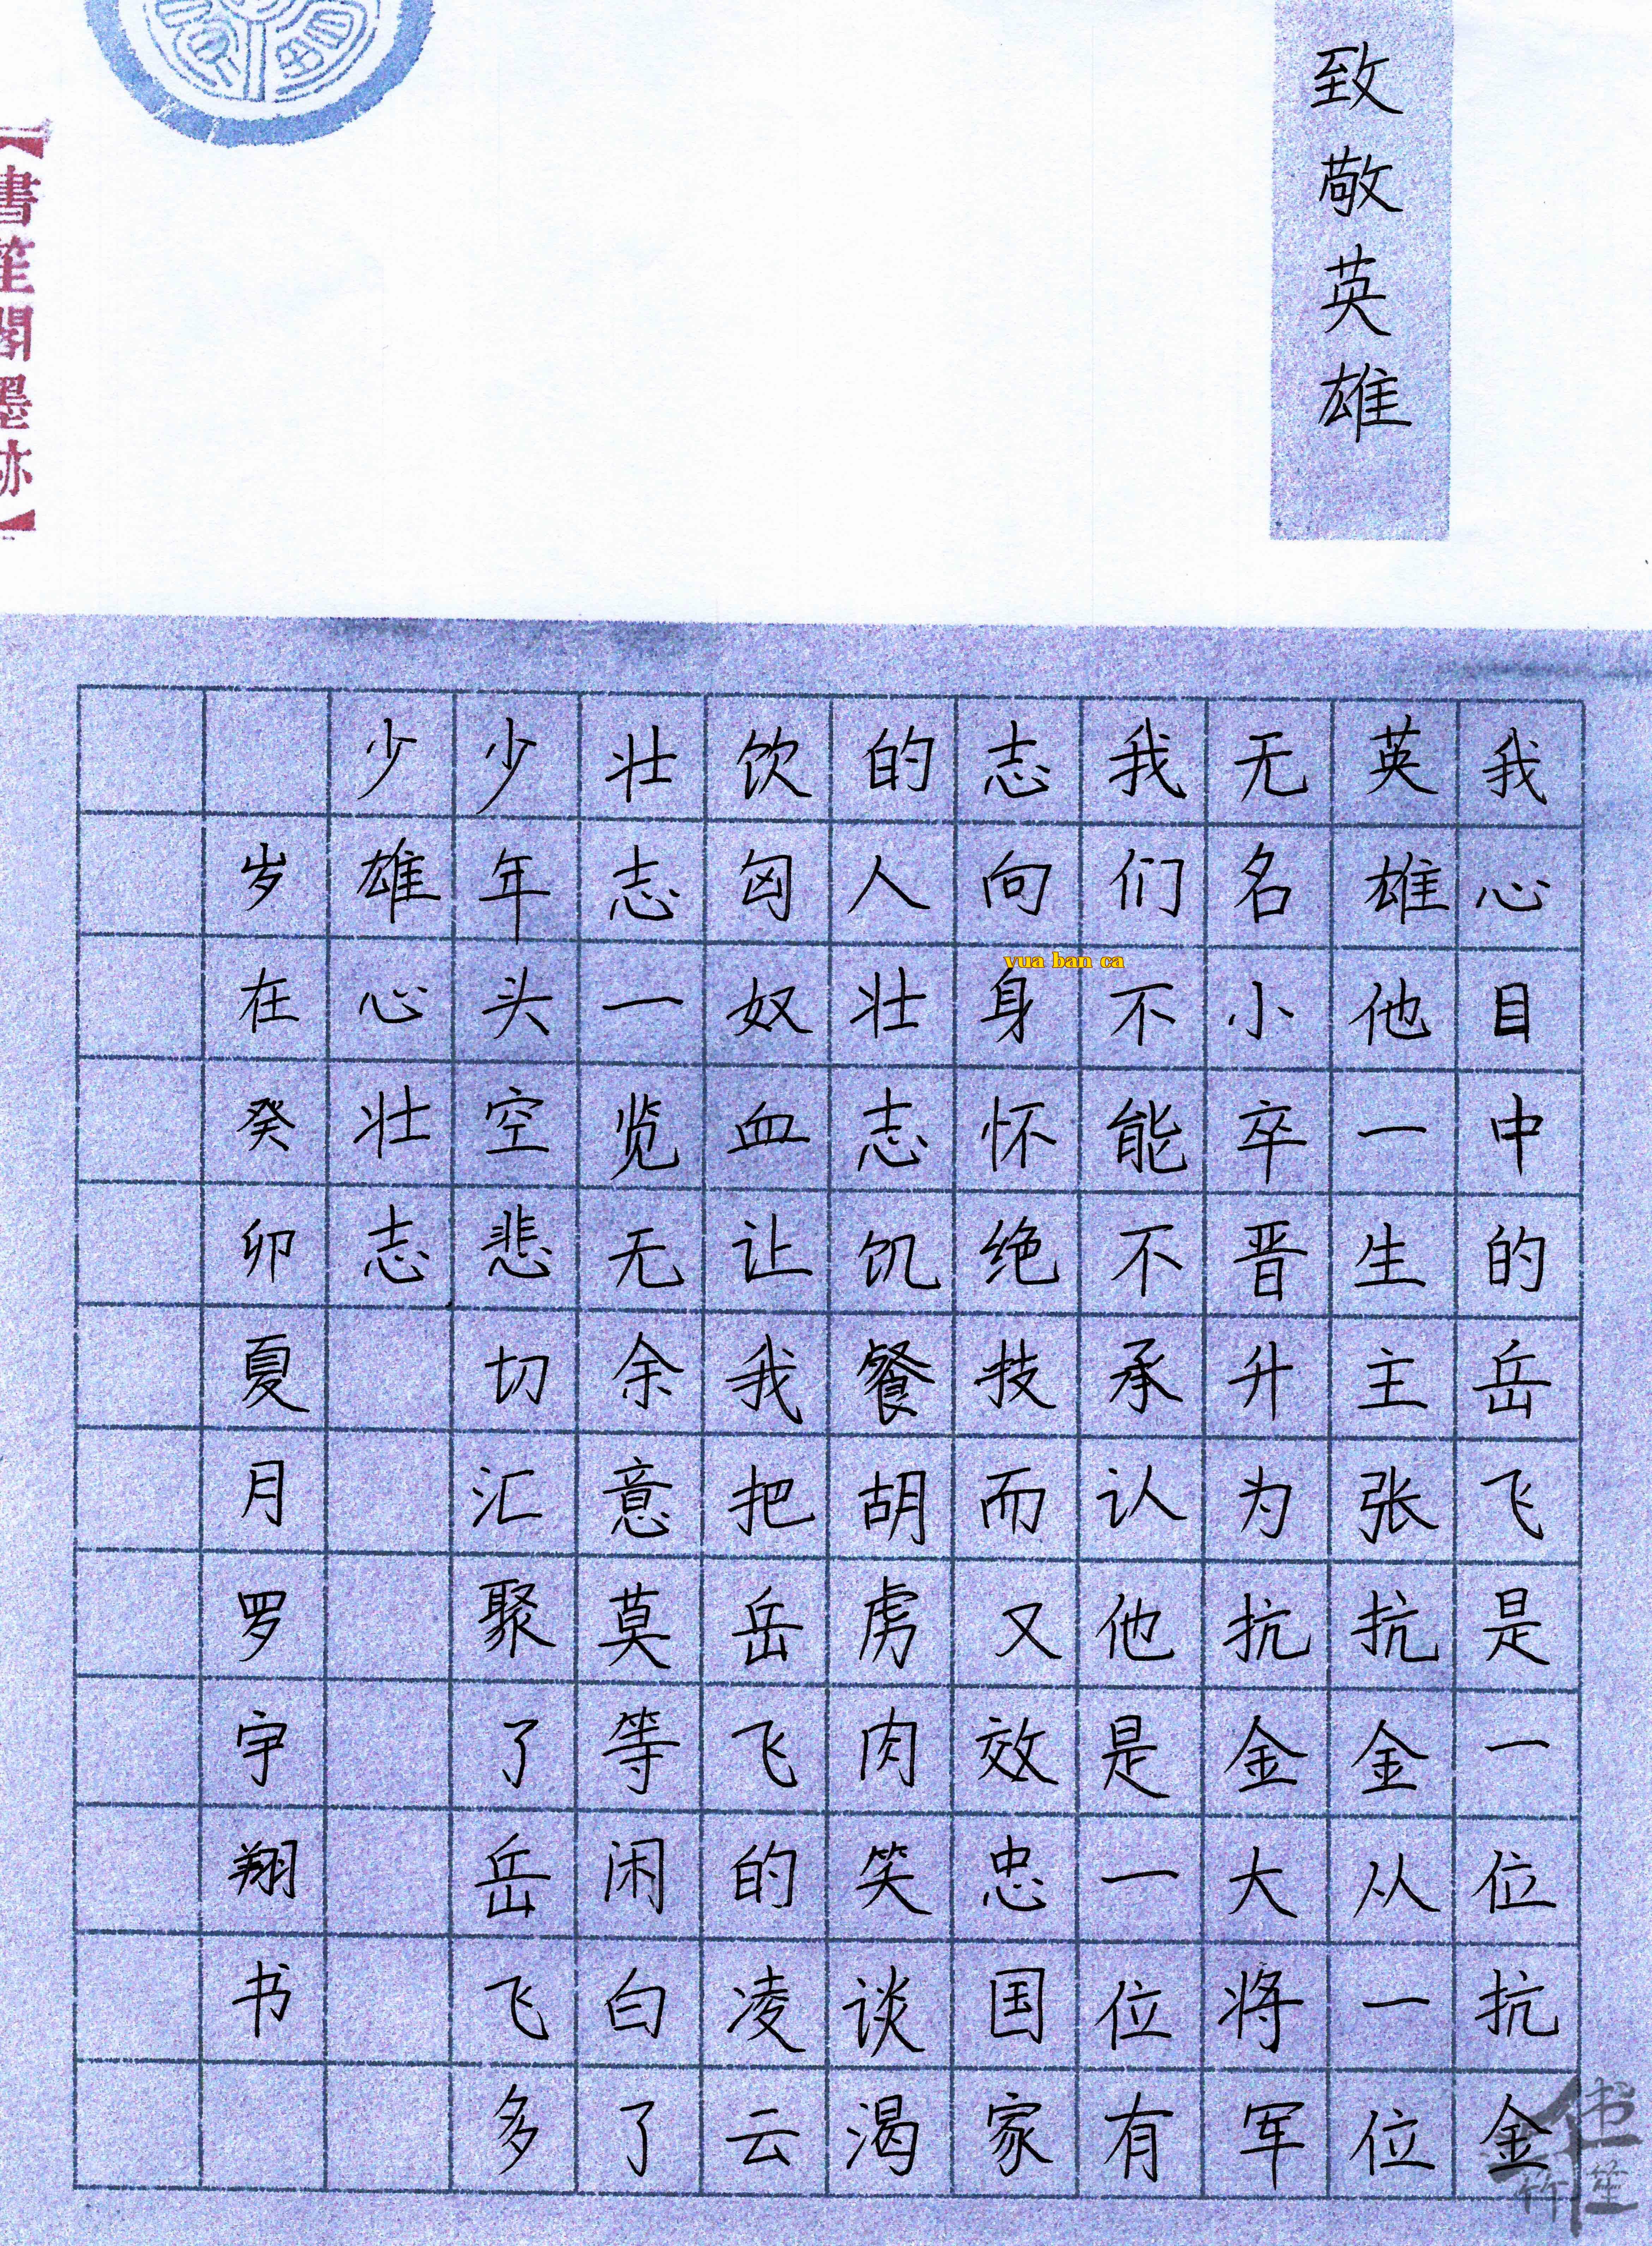 致敬英雄
我心目中的岳飞是一位抗金
英雄他一生主张抗金从一位
无名小卒晋升为抗金大将军
我们不能不承认他是一位有
志向身怀绝技而又效忠国家
的人壮志饥餐胡虏肉笑谈渴
饮匈奴血让我把岳飞的凌云
壮志一览无余意莫等闲白了
少年头空悲切汇聚了岳飞多
少雄心壮志
岁在癸卯夏月罗宇翔书
vua ban ca
書笙閣墨跡
书笙